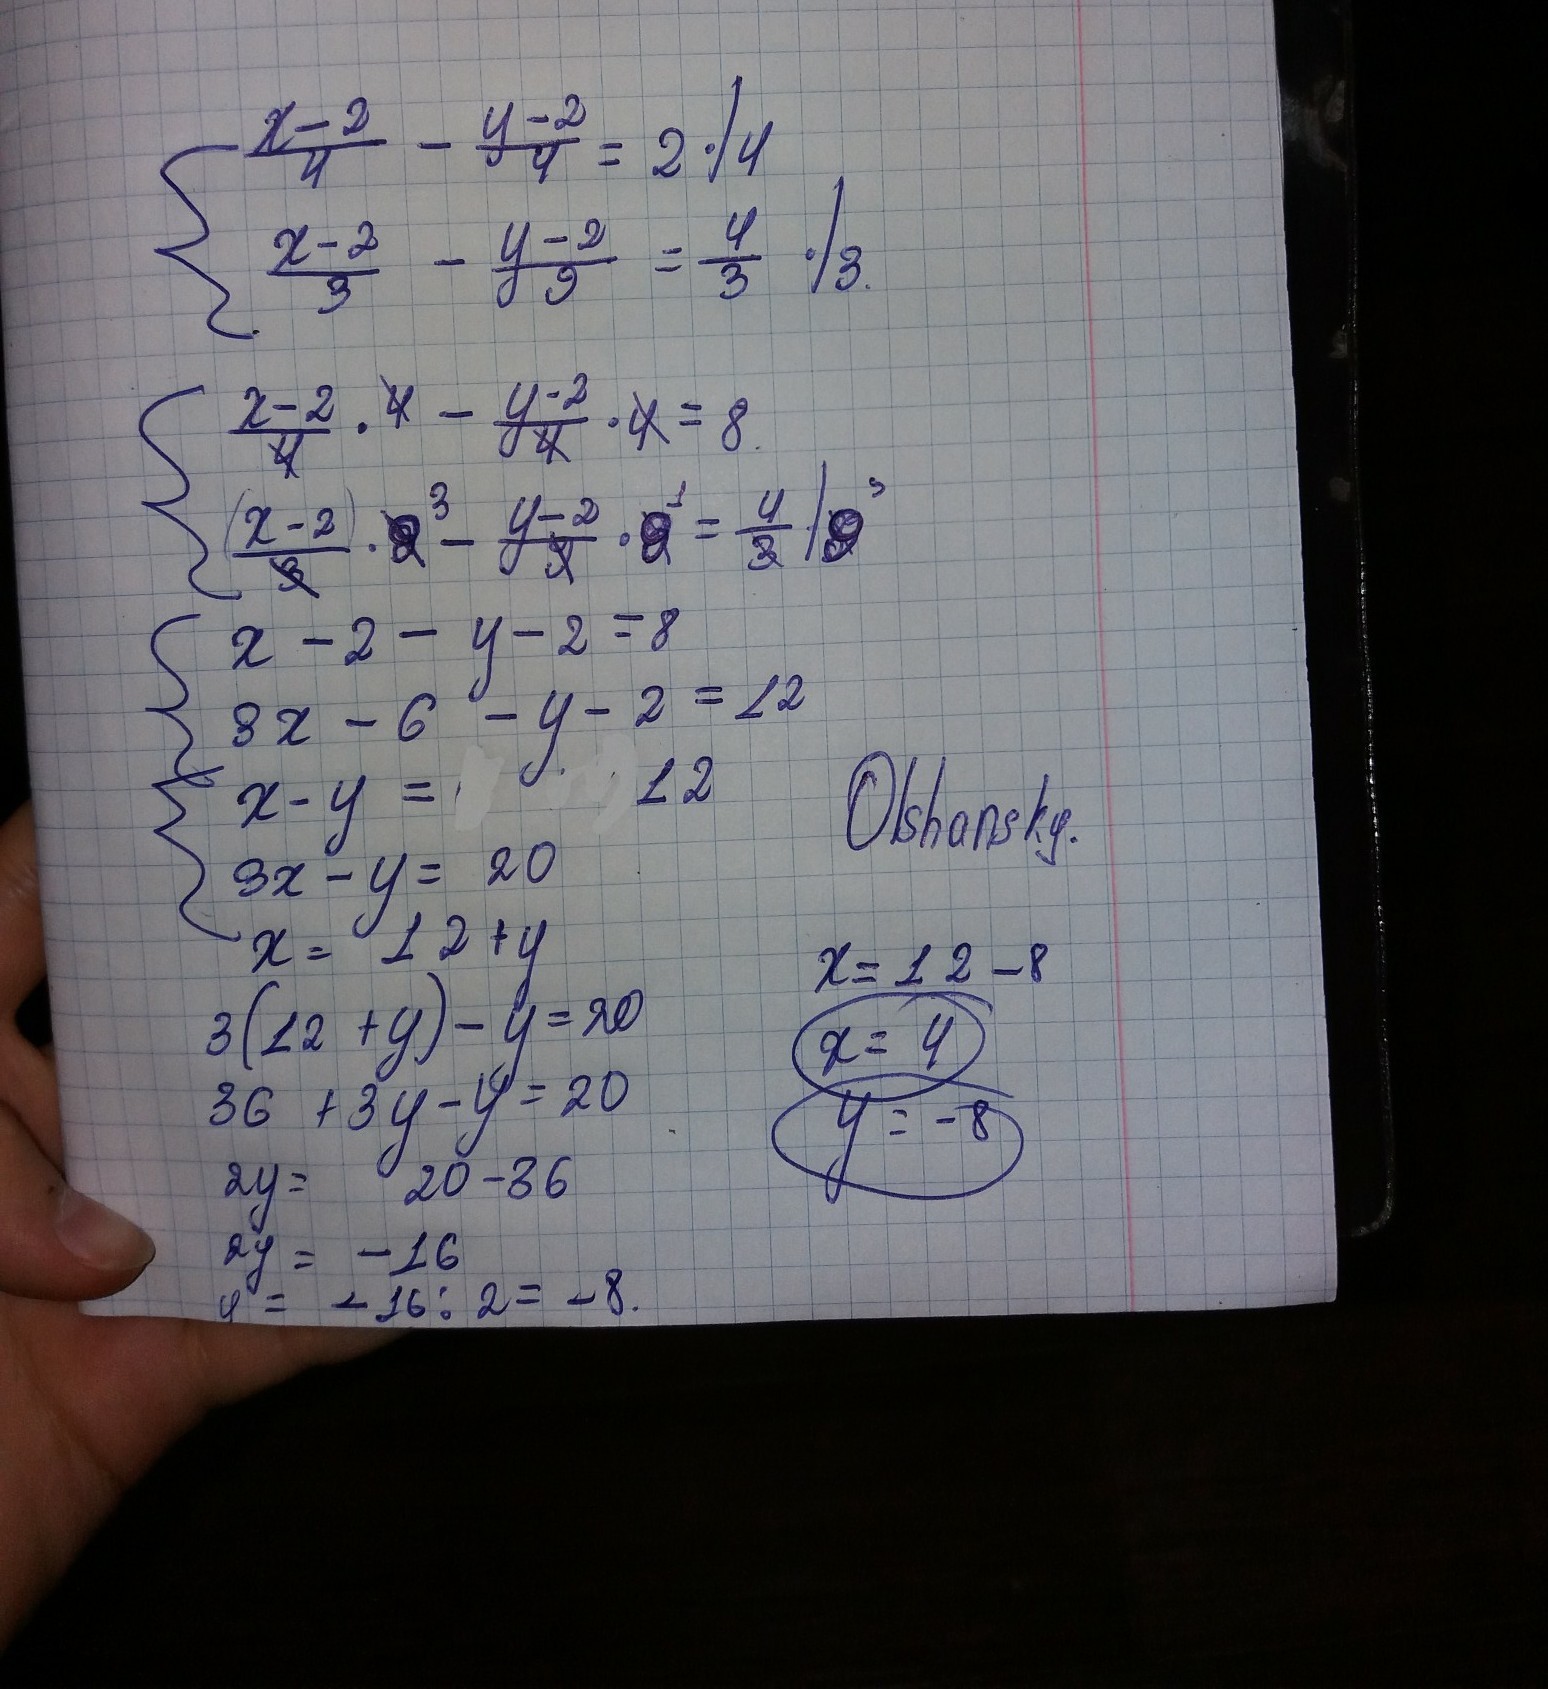 x-2/4 - y-2/4 = 2 ·/4
x-2/3 - y-2/9 = 4/3 ·/3.
x-2/4 · 4 - y-2/4 · 4 = 8.
(x-2)/3 · 9 3 - y-2/9 · 9 1 = 4/3 /9 3
x - 2 - y - 2 = 8
3x - 6 - y - 2 = 12
x - y = 12
3x - y = 20
Olshansky.
x = 12 + y
3(12 + y) - y = 20
36 + 3y - y = 20
2y = 20 - 36
2y = -16
y = -16 : 2 = -8.
x = 12 - 8
x = 4
y = -8